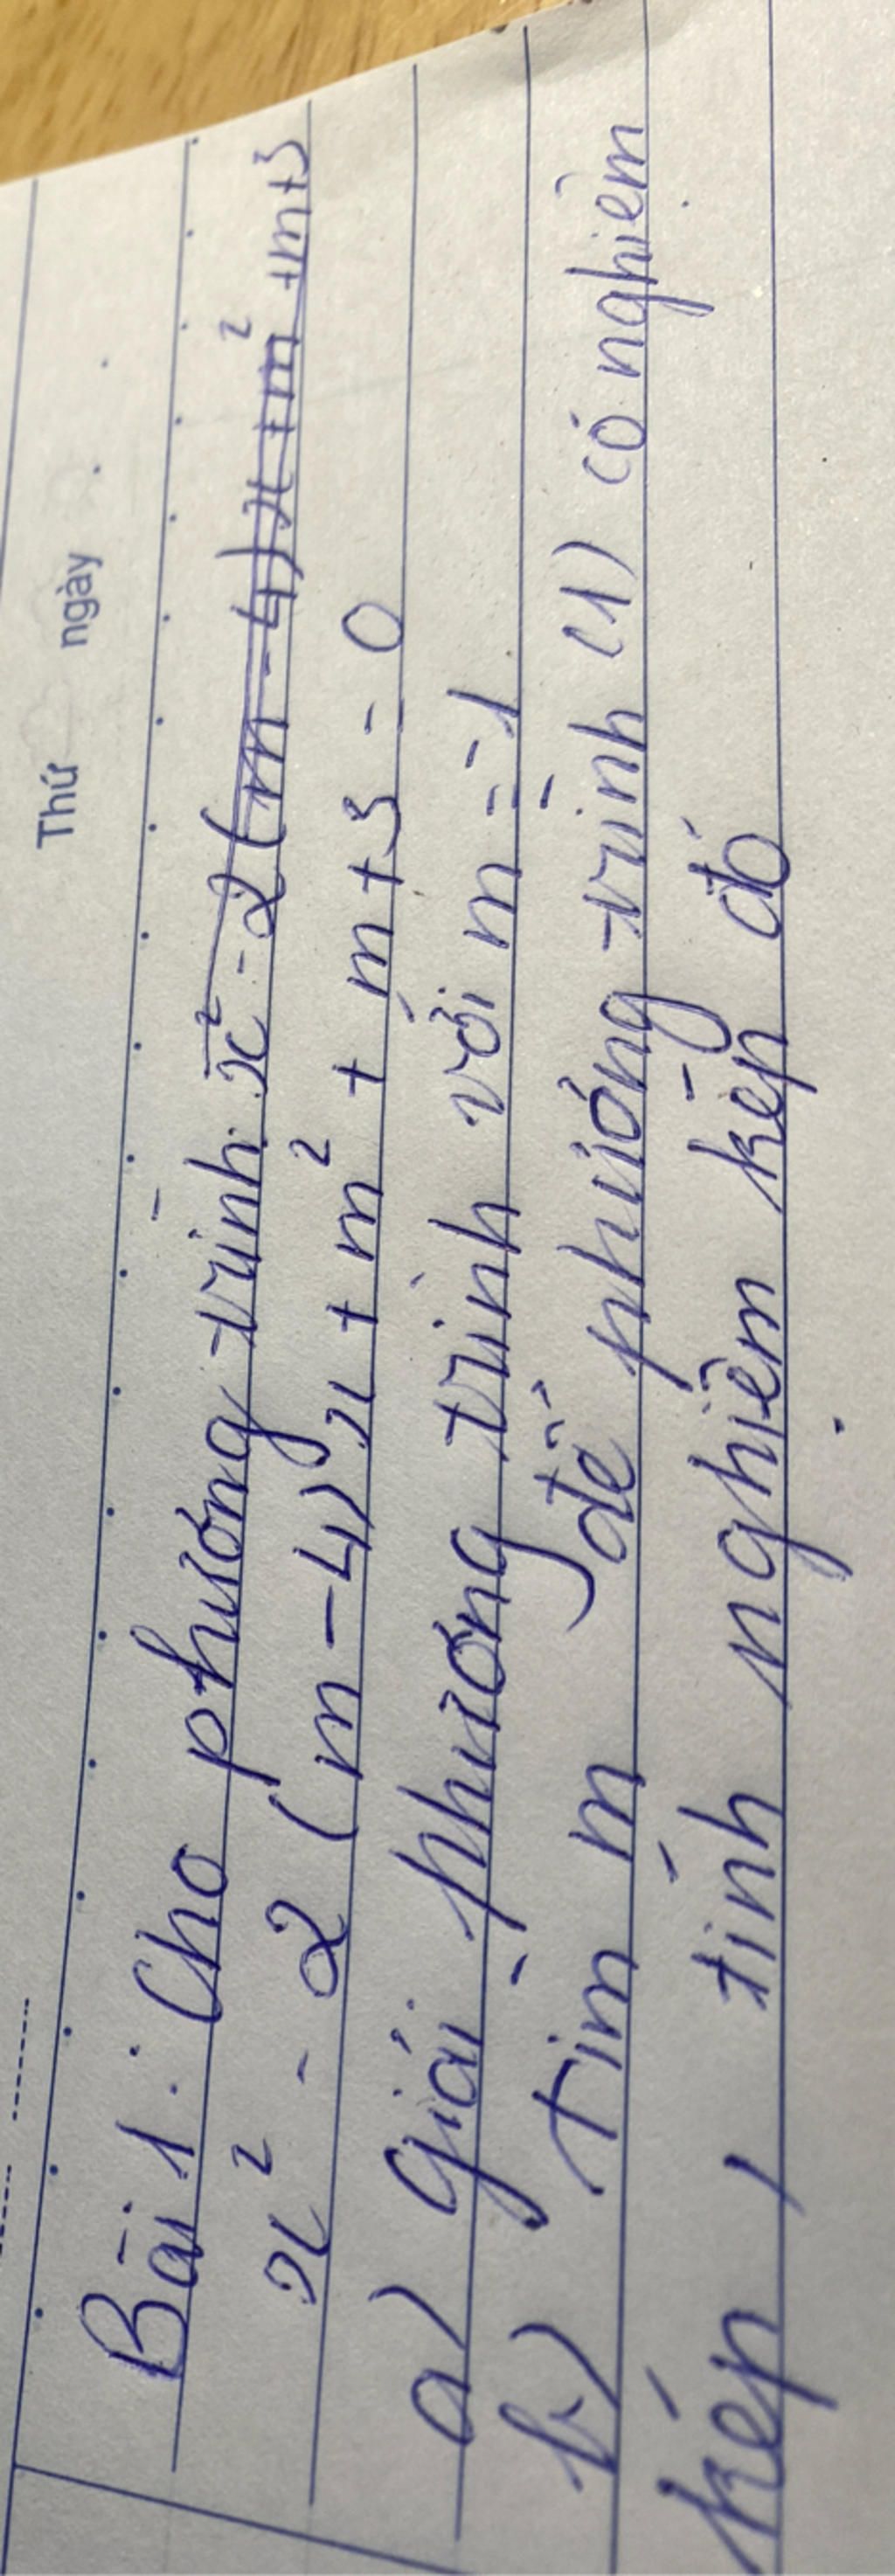 Thứ ngày
Bài 1: Cho phương trình x² - 2(m - 4)x + m² + m + 3
x² - 2(m - 4)x + m² + m + 3 = 0
a) Giải phương trình với m = -1
b) Tìm m để phương trình (1) có nghiệm
kép, tính nghiệm kép đó